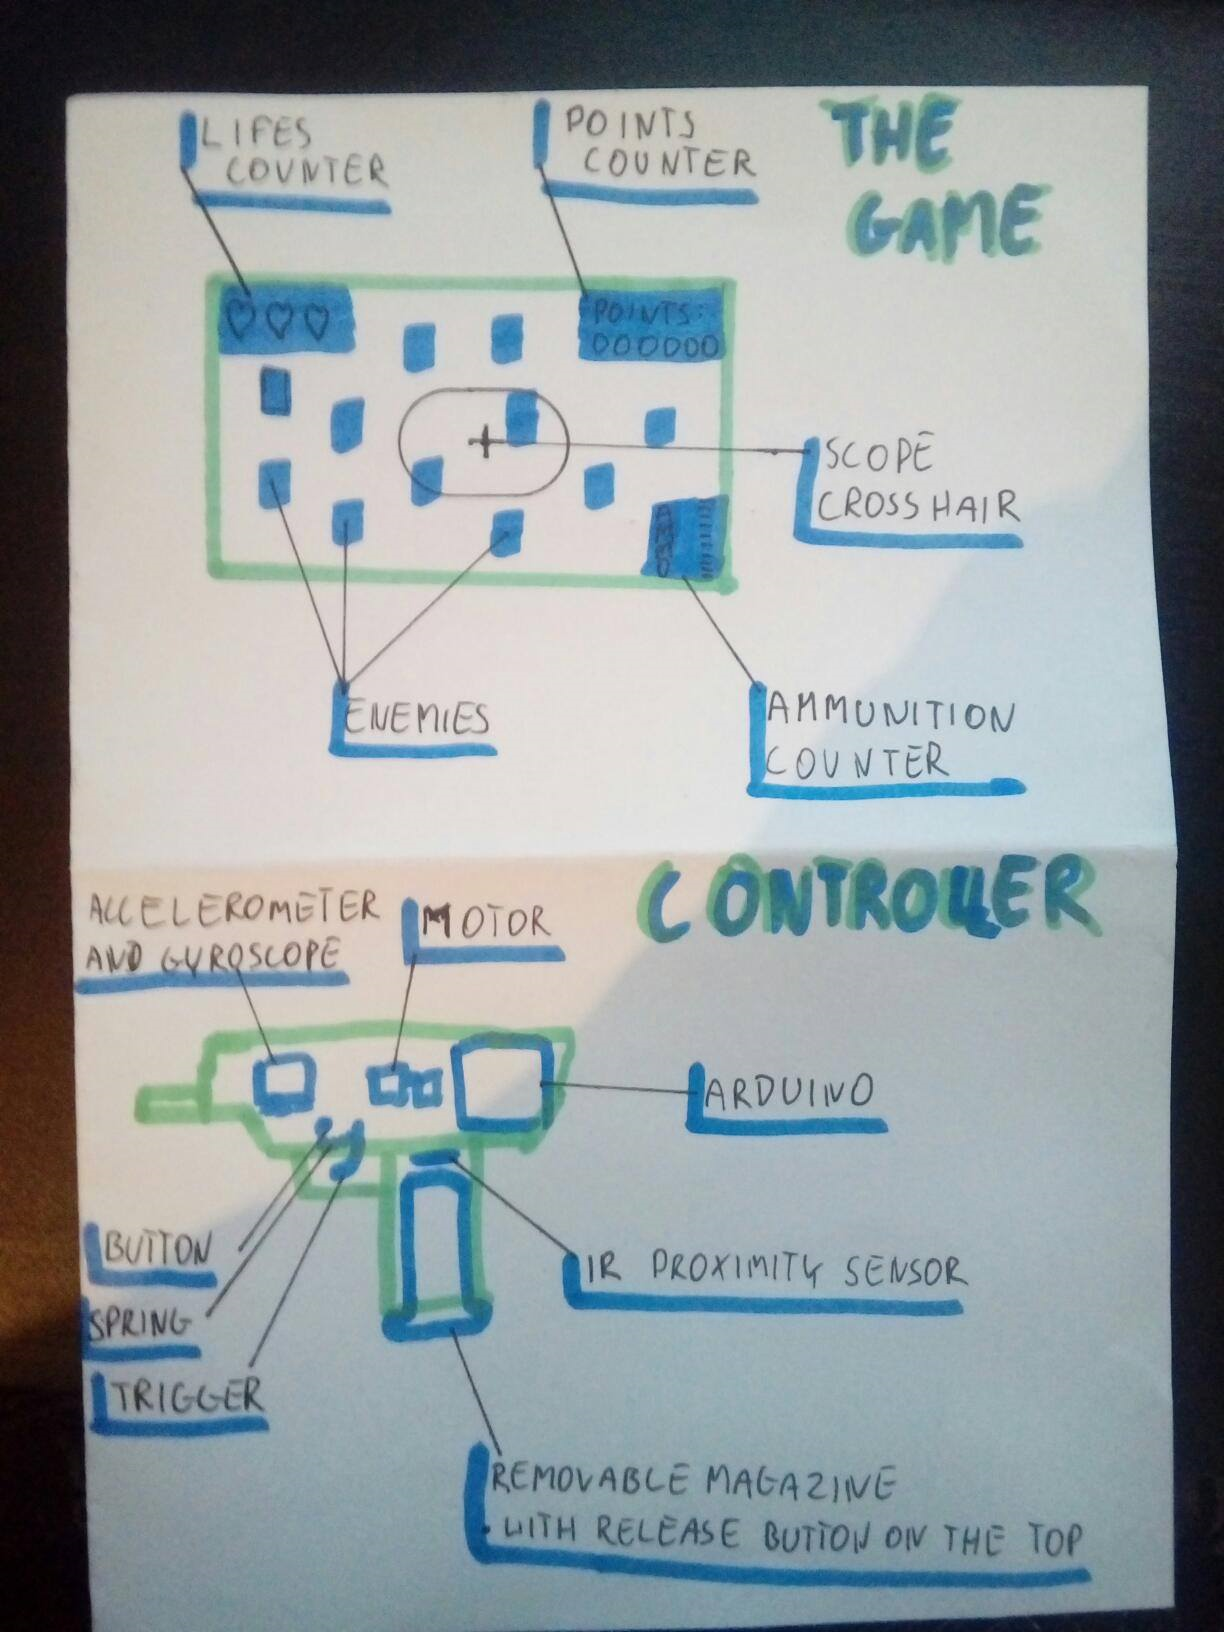 LIFES
COUNTER
POINTS
COUNTER
THE
GAME
POINTS:
000000
SCOPE
CROSSHAIR
AMMO
ENEMIES
AMMUNITION
COUNTER
CONTROLLER
ACCELEROMETER
AND GYROSCOPE
MOTOR
ARDUINO
BUTTON
IR PROXIMITY SENSOR
SPRING
TRIGGER
REMOVABLE MAGAZINE
WITH RELEASE BUTTON ON THE TOP